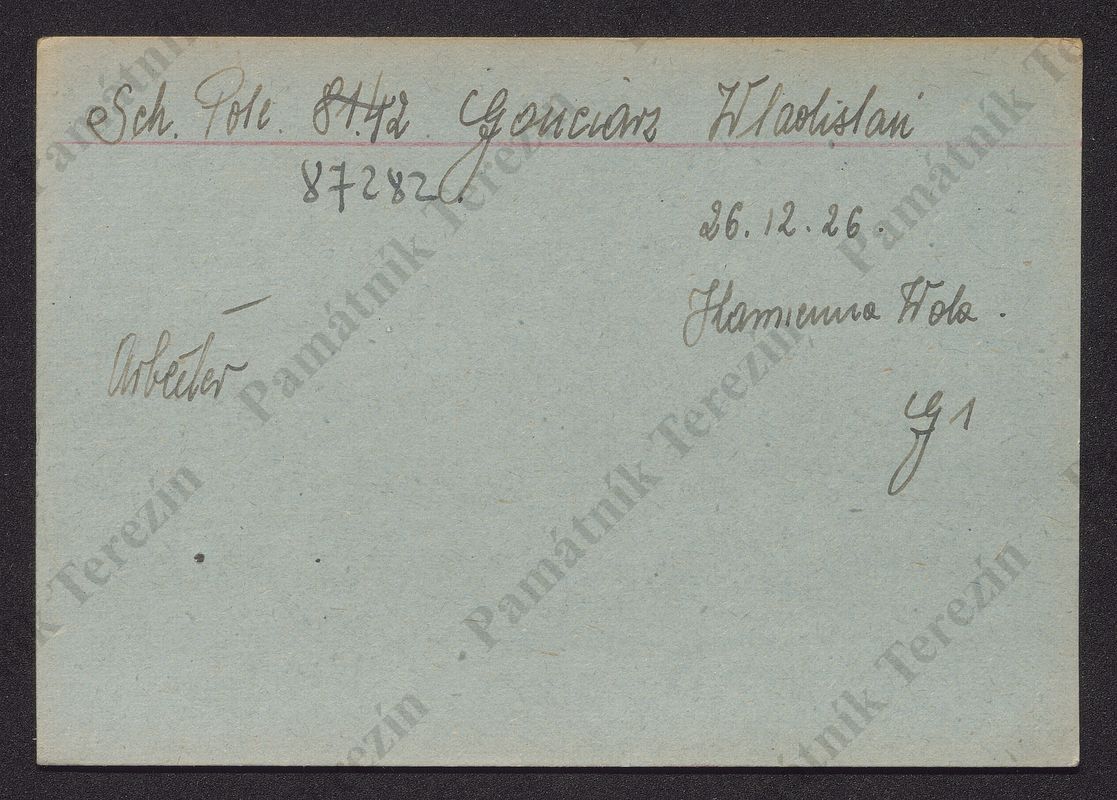 Sch. Pole. 8142 Gonciarz Wladislau
87282.
26.12.26.
Kamienna Wola.
Arbeiter
G 1
Památník Terezín